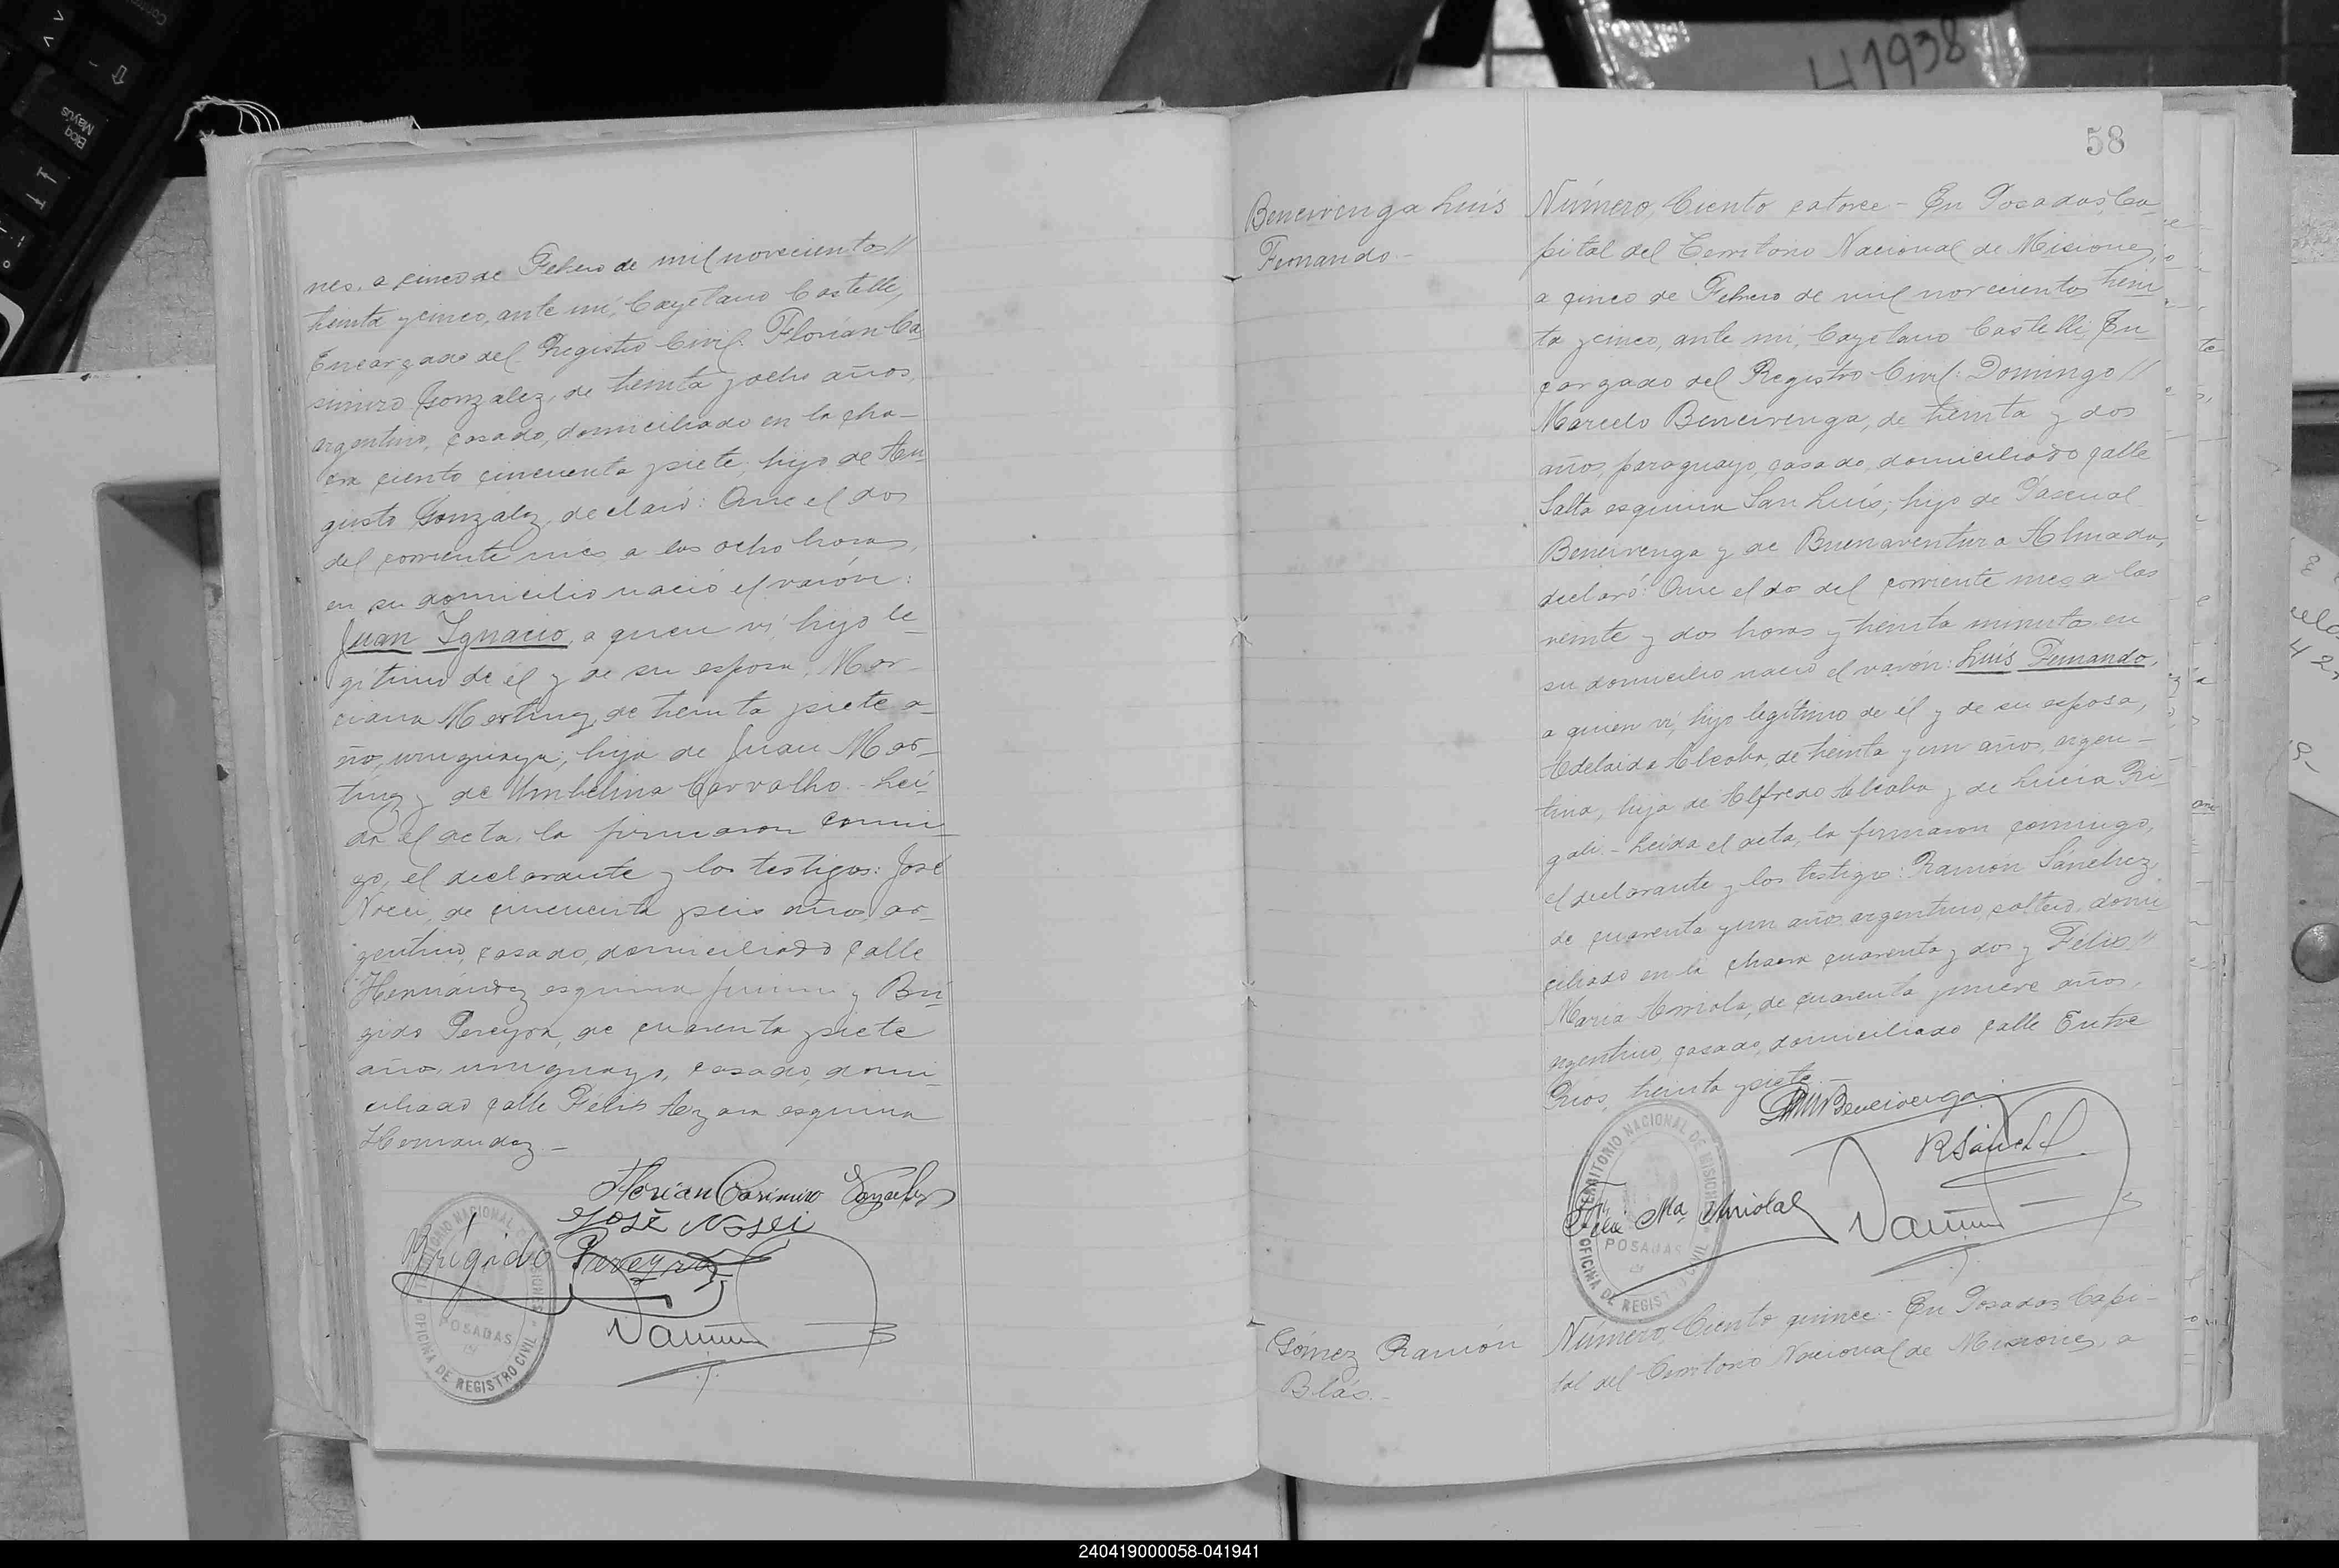 nes, a cinco de Febrero de mil novecientos //
treinta y cinco, ante mí, Cayetano Castelli,
Encargado del Registro Civil: Florián Ca-
simiro González, de treinta y ocho años,
argentino, casado, domiciliado en la cha-
cra ciento cincuenta y siete, hijo de Au-
gusto González, declaró: Que el dos
del corriente mes, a las ocho horas,
en su domicilio nació el varón:
Juan Ignacio, a quien ví, hijo le-
gítimo de él y de su esposa, Mar-
ciana Martinz, de treinta y siete a-
ños, uruguaya; hija de Juan Mar-
tinz y de Umbelina Carvalho. - Leí-
da el acta, la firmaron conmi-
go, el declarante y los testigos: José
Nocei, de cincuenta y seis años, ar-
gentino, casado, domiciliado calle
Hernández esquina Junin y Brí-
gido Pereyra, de cuarenta y siete
años, uruguayo, casado, domi-
ciliado calle Félix Azara esquina
Hernandez -
Florian Casimiro Gonzalez
José Nosei
Brígido Pereyra
TERRITORIO NACIONAL DE MISIONES
POSADAS
OFICINA DE REGISTRO CIVIL
58
Bencivenga Luís
Fernando -
Número Ciento catorce - En Posadas, Ca-
pital del Territorio Nacional de Misiones,
a cinco de Febrero de mil novecientos trein-
ta y cinco, ante mí, Cayetano Castelli, En-
cargado del Registro Civil: Domingo //
Marcelo Bencivenga, de treinta y dos
años, paraguayo, casado, domiciliado calle
Salta esquina San Luís; hijo de Pascual
Bencivenga y de Buenaventura Almada,
declaró: Que el dos del corriente mes a las
veinte y dos horas y treinta minutos en
su domicilio nació el varón: Luís Fernando,
a quien ví, hijo legítimo de él y de su esposa,
Adelaida Alcaba, de treinta y un años, argen-
tina, hija de Alfredo Alcaba y de Lucía Ri-
gali - Leída el acta, la firmaron conmigo,
el declarante y los testigos: Ramón Sánchez,
de cuarenta y un años, argentino, soltero, domi-
ciliado en la chacra cuarenta y dos y Félix //
María Arriola, de cuarenta y nueve años,
argentino, casado, domiciliado calle Entre
Ríos, treinta y siete. -
DM Bencivenga
R Sánch
Félix Ma Arriola
TERRITORIO NACIONAL DE MISIONES
POSADAS
OFICINA DE REGISTRO CIVIL
Gómez Ramón
Blás. -
Número Ciento quince - En Posadas Capi-
tal del Territorio Nacional de Misiones, a
41938
Bloq
Mayús
240419000058-041941